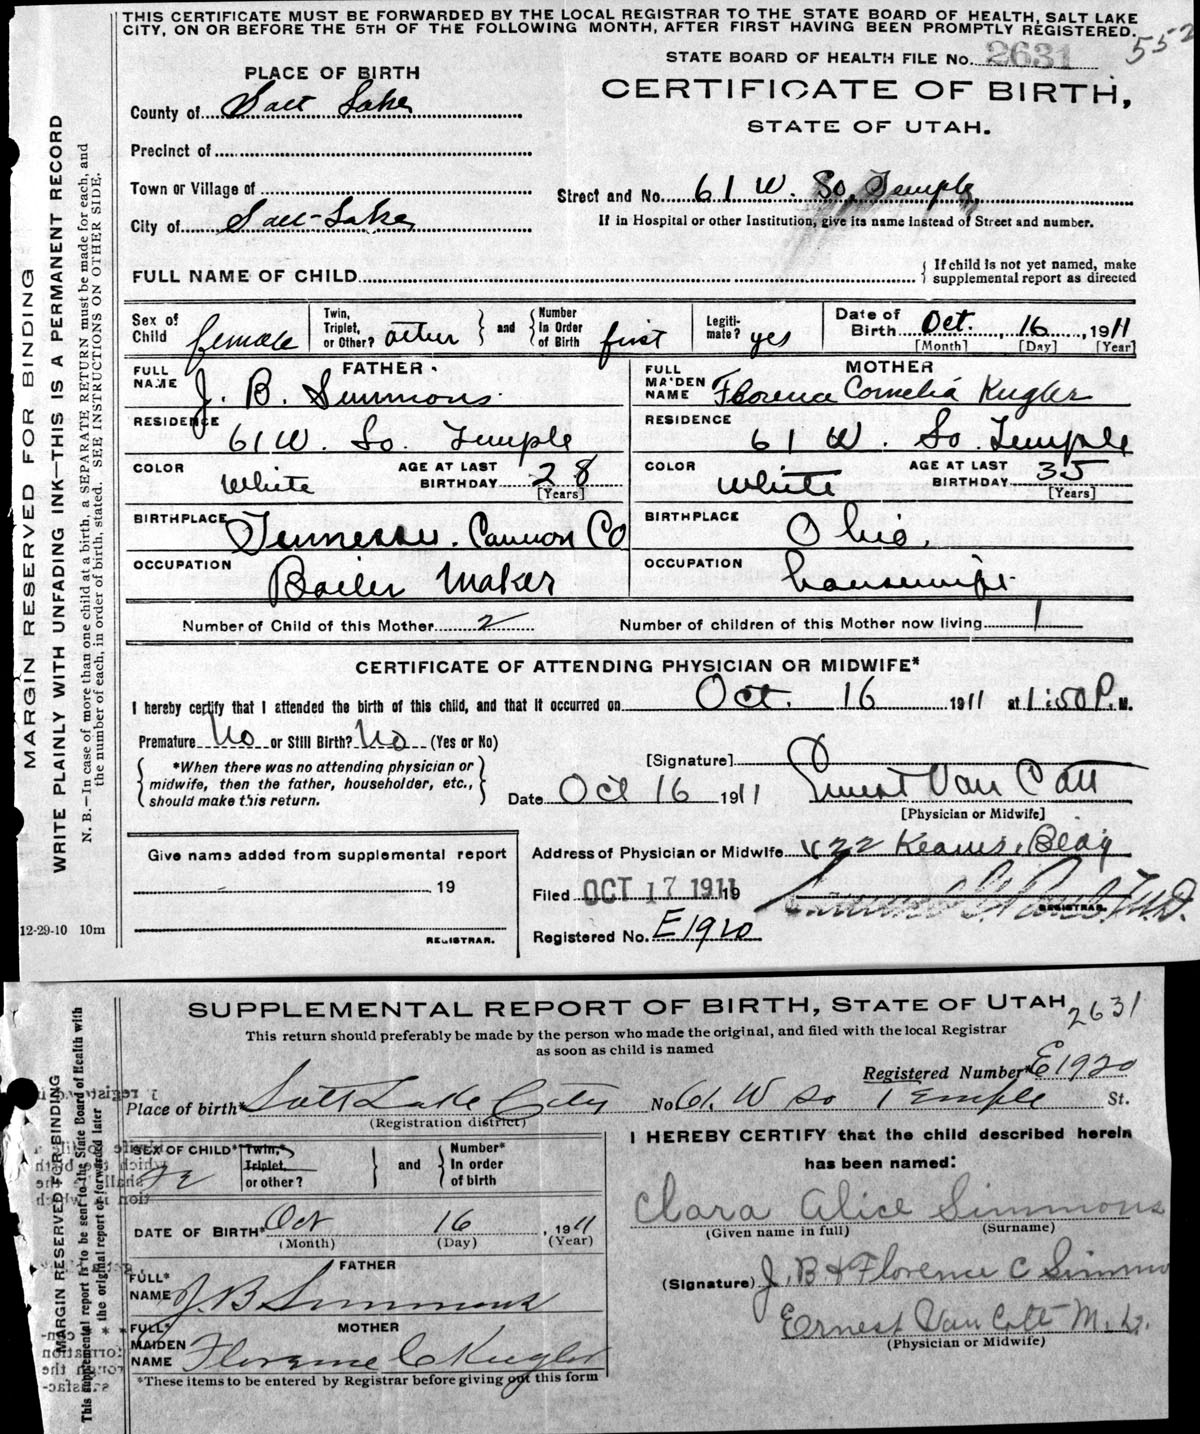 THIS CERTIFICATE MUST BE FORWARDED BY THE LOCAL REGISTRAR TO THE STATE BOARD OF HEALTH, SALT LAKE
CITY, ON OR BEFORE THE 5TH OF THE FOLLOWING MONTH, AFTER FIRST HAVING BEEN PROMPTLY REGISTERED.
552
STATE BOARD OF HEALTH FILE No. 2631
PLACE OF BIRTH
CERTIFICATE OF BIRTH,
STATE OF UTAH.
County of Salt Lake
Precinct of
Town or Village of
City of Salt Lake
Street and No. 61 W. So. Temple
If in Hospital or other Institution, give its name instead of Street and number.
FULL NAME OF CHILD
If child is not yet named, make
supplemental report as directed
Sex of Child female
Twin, Triplet, or Other? other
and
Number In Order of Birth first
Legiti-mate? yes
Date of Birth Oct. 16, 1911
[Month] [Day] [Year]
FATHER
FULL NAME J. B. Simmons
RESIDENCE 61 W. So. Temple
COLOR White
AGE AT LAST BIRTHDAY 28
[Years]
BIRTHPLACE Tennessee. Cannon Co
OCCUPATION Boiler Maker
MOTHER
FULL MAIDEN NAME Florence Cornelia Kugler
RESIDENCE 61 W. So. Temple
COLOR White
AGE AT LAST BIRTHDAY 35
[Years]
BIRTHPLACE Ohio.
OCCUPATION housewife
Number of Child of this Mother 2
Number of children of this Mother now living 1
CERTIFICATE OF ATTENDING PHYSICIAN OR MIDWIFE*
I hereby certify that I attended the birth of this child, and that it occurred on Oct. 16 1911 at 1:50 P. M.
Premature No or Still Birth? No (Yes or No)
*When there was no attending physician or
midwife, then the father, householder, etc.,
should make this return.
[Signature] Ernest Van Cott
[Physician or Midwife]
Date Oct 16 1911
Give name added from supplemental report
19
REGISTRAR.
Address of Physician or Midwife 22 Kearns Bldg
Filed OCT 17 1911 19
REGISTRAR.
Registered No. E1920
12-29-10 10m
MARGIN RESERVED FOR BINDING
WRITE PLAINLY WITH UNFADING INK—THIS IS A PERMANENT RECORD
N. B.—In case of more than one child at a birth, a SEPARATE RETURN must be made for each, and
the number of each, in order of birth, stated. SEE INSTRUCTIONS ON OTHER SIDE.
SUPPLEMENTAL REPORT OF BIRTH, STATE OF UTAH
2631
This return should preferably be made by the person who made the original, and filed with the local Registrar
as soon as child is named
Registered Number* E1920
Place of birth* Salt Lake City No 61. W So Temple St.
(Registration district)
SEX OF CHILD* Fe
Twin,* Triplet, or other?
and
Number* In order of birth
DATE OF BIRTH* Oct 16, 1911
(Month) (Day) (Year)
FATHER
FULL* NAME J. B Simmons
MOTHER
FULL* MAIDEN NAME Florence C Kugler
*These items to be entered by Registrar before giving out this form
I HEREBY CERTIFY that the child described herein
has been named:
Clara Alice Simmons
(Given name in full) (Surname)
(Signature) J. B & Florence C Simmo
Ernest Van Cott M. D.
(Physician or Midwife)
MARGIN RESERVED FOR BINDING
This supplemental report is to be sent to the State Board of Health with
the original report or forwarded later